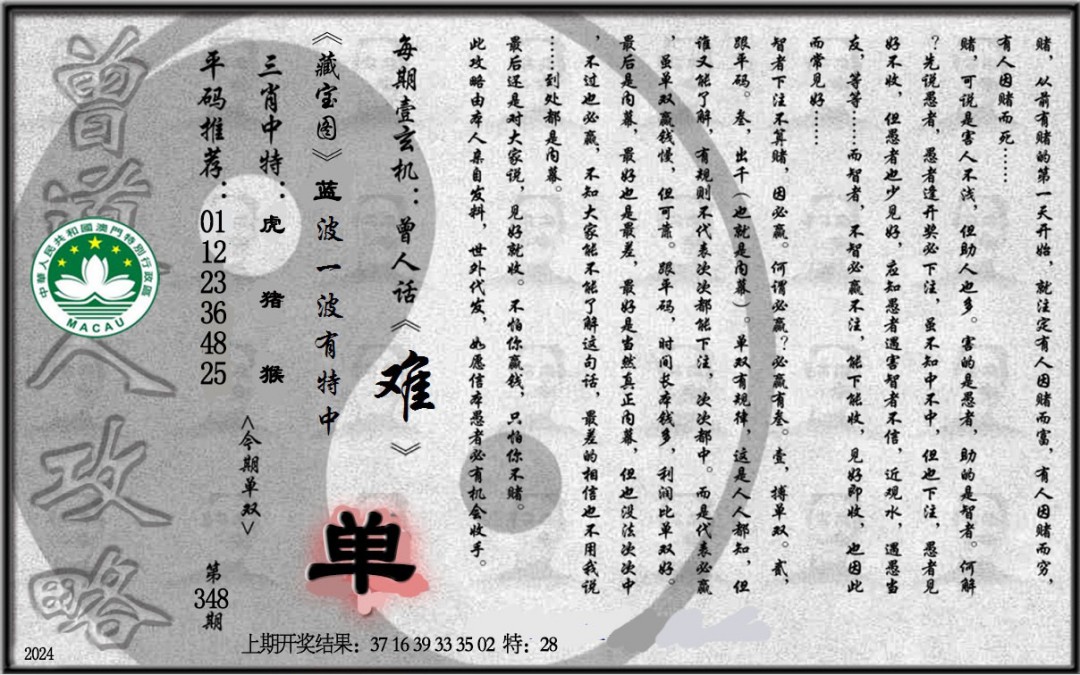 赌，从前有赌的第一天开始，就注定有人因赌而富，有人因赌而穷，
有人因赌而死……
赌，可说是害人不浅，但助人也多。害的是愚者，助的是智者。何解
？先说愚者，愚者逢开奖必下注，虽不知中不中，但也下注，愚者见
好不收，但愚者也少见好，应知愚者遇害智者不信，近观水，遇愚当
友，等等……而智者，不智必赢不注，能下能收，见好即收，也因此
而常见好……
智者下注不算赌，因必赢。何谓必赢？必赢有叁。壹，搏单双。贰，
跟平码。叁，出千（也就是内幕）。单双有规律，这是人人都知，但
谁又能了解，有规则不代表次次都能下注，次次都中。而是代表必赢
，虽单双赢钱慢，但可靠。跟平码，时间长本钱多，利润比单双好。
最后是内幕，最好也是最差，最好是当然真正内幕，但也没法次次中
，不过也必赢，不知大家能不能了解这句话，最差的相信也不用我说
……到处都是内幕。
最后还是对大家说，见好就收。不怕你赢钱，只怕你不赌。
此攻略由本人亲自发料，世外代发，如愿信本愚者必有机会收手。
每期壹玄机：曾人话《难》
《藏宝图》蓝波一波有特中
单
三肖中特：虎 猪 猴
<今期单双>
平码推荐：01 12 23 36 48 25
第348期
曾道人攻略
中華人民共和國澳門特別行政區
MACAU
上期开奖结果：37 16 39 33 35 02 特：28
2024